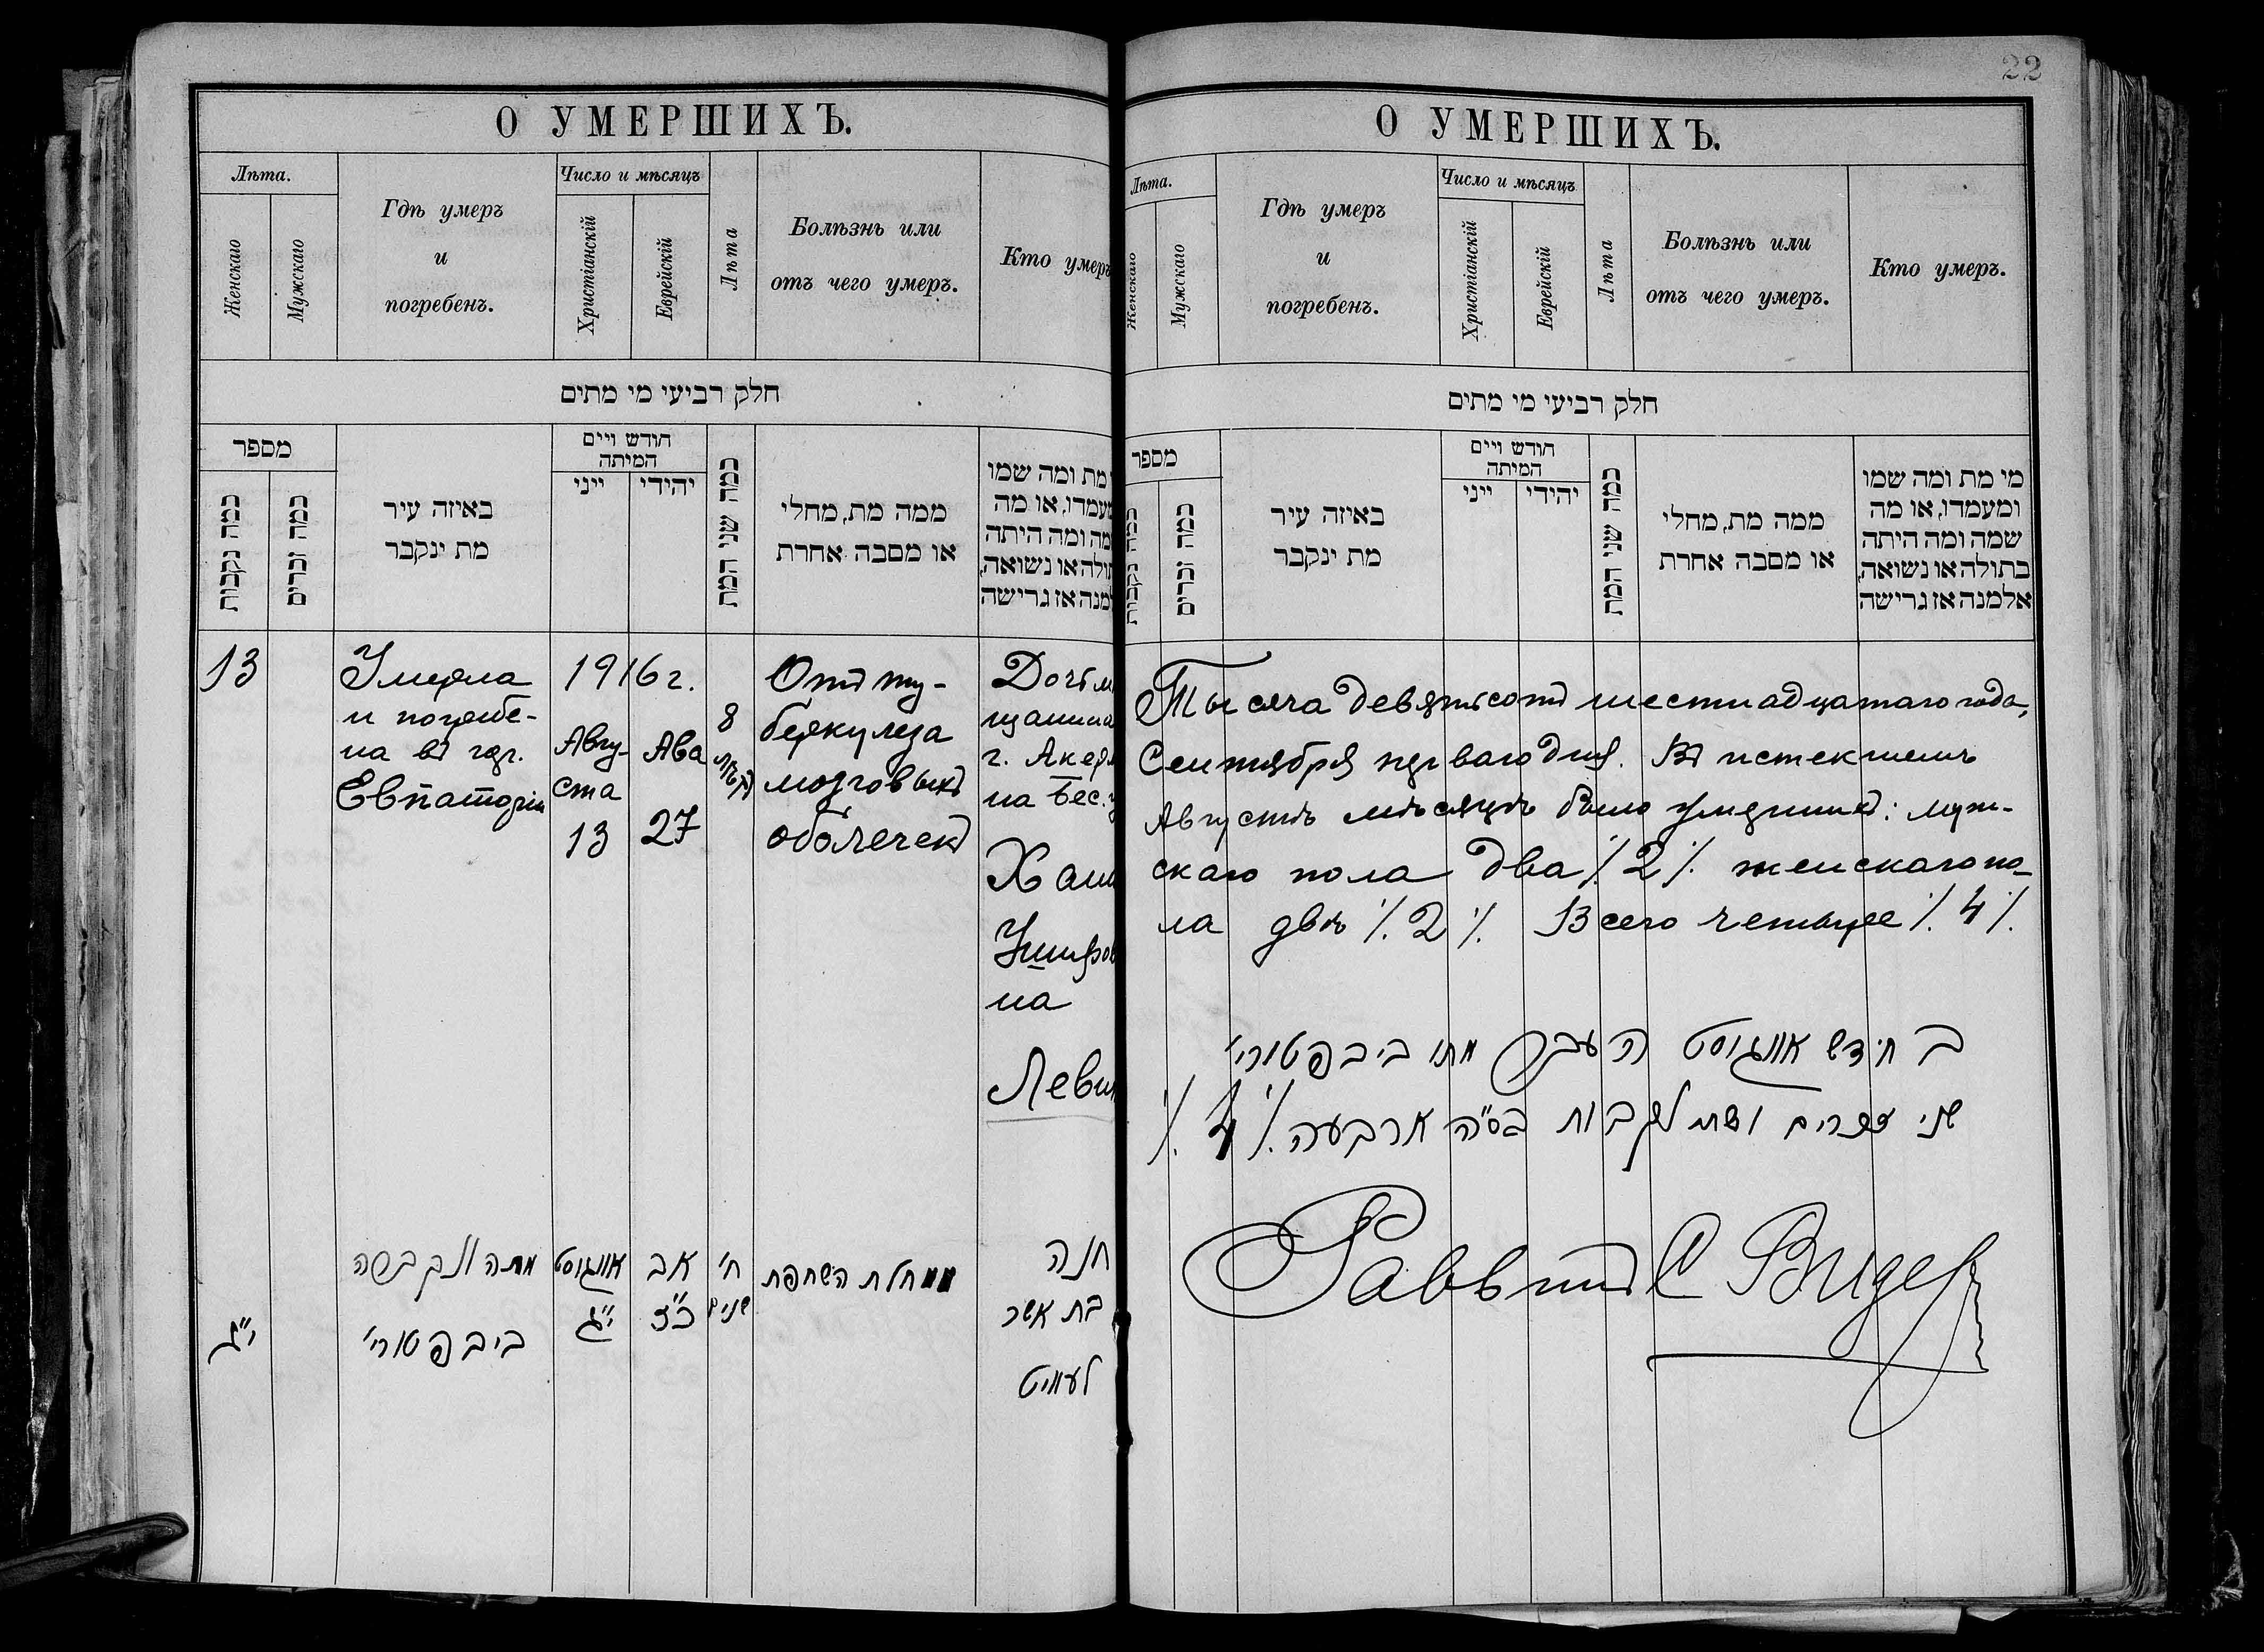 22
О УМЕРШИХЪ.
Лѣта.
Женскаго
Мужскаго
Гдѣ умеръ
и
погребенъ.
Число и мѣсяцъ
Христіанскій
Еврейскій
Лѣта
Болѣзнь или
отъ чего умеръ.
Кто умеръ
חלק רביעי מי מתים
מספר
כמה נקבות
כמה זכרים
באיזה עיר
מת ינקבר
חודש ויים
המיתה
ייני
יהודי
כמה שני המת
ממה מת, מחלי
או מסבה אחרת
מת ומה שמו
מעמדו, או מה
מה ומה היתה
תולה או נשואה,
למנה אז גרישה
13
Умерла
и погребе-
на въ гор.
Евпаторіи
1916 г.
Авгу-
ста
13
Ава
27
8
лѣтъ
Отъ ту-
беркулеза
мозговыхъ
оболочекъ
Дочь м
щанина
г. Акер
на Бес.
Хан
Ушеров
на
Леви
י"ג
מתה ונקברה
ביבפטורי'
אווגוסט
י"ג
אב
כ"ז
ח'
שנים
ממחלת השחפת
חנה
בת אשר
О УМЕРШИХЪ.
Лѣта.
Женскаго
Мужскаго
Гдѣ умеръ
и
погребенъ.
Число и мѣсяцъ
Христіанскій
Еврейскій
Лѣта
Болѣзнь или
отъ чего умеръ.
Кто умеръ.
חלק רביעי מי מתים
מספר
כמה נקבות
כמה זכרים
באיזה עיר
מת ינקבר
חודש ויים
המיתה
ייני
יהודי
כמה שני המת
ממה מת, מחלי
או מסבה אחרת
מי מת ומה שמו
ומעמדו, או מה
שמה ומה היתה
בתולה או נשואה,
אלמנה אז גרישה
Тысяча девятьсотъ шестнадцатаго года,
Сентября перваго дня. Въ истекшемъ
Августѣ мѣсяцѣ было умершихъ: муж-
скаго пола два ./. 2 ./. женскаго по-
ла двѣ ./. 2 ./. Всего четыре ./. 4 ./.
בחידש אווגוסט העבר מתו ביבפטורי'
שני זכרים ושתי נקבות בס"ה ארבעה ./. 4 ./.
Раввинъ С Видер